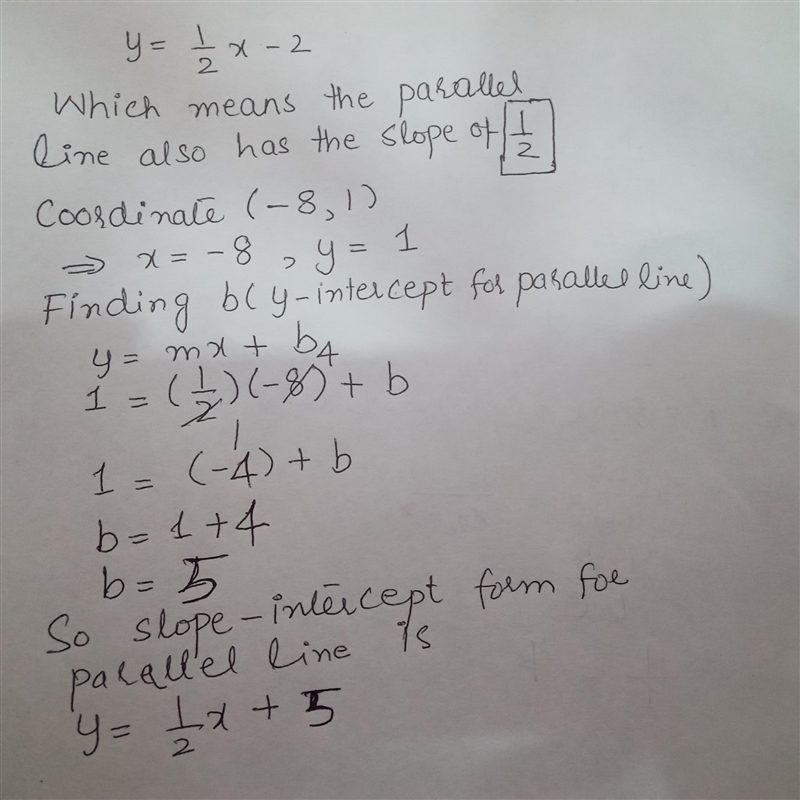 y = 1/2 x - 2
Which means the parallel
line also has the slope of 1/2
Coordinate (-8, 1)
⇒ x = -8, y = 1
Finding b( y-intercept for parallel line)
y = mx + b
4
1 = (1/2)(-8) + b
1
1 = (-4) + b
b = 1 + 4
b = 5
So slope-intercept form foe
parallel line is
y = 1/2 x + 5